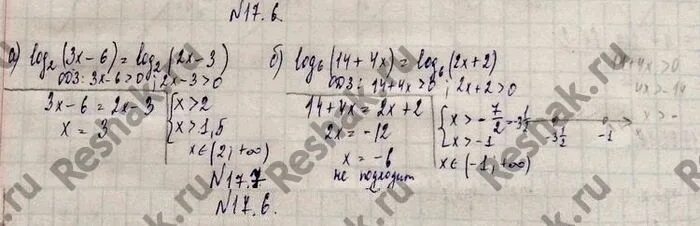 N17.6.
а) log₂(3x-6) = log₂(2x-3)
ОДЗ: 3x-6>0; 2x-3>0
3x-6 = 2x-3
x = 3
{x>2
x>1,5
x∈(2; +∞)
б) log₆(14+4x) = log₆(2x+2)
ОДЗ: 14+4x>0; 2x+2>0
14+4x = 2x+2
2x = -12
x = -6
не подходит
{x>-7/2=-3 1/2
x>-1
x∈(-1; +∞)
-3 1/2 -1
14+4x>0
4x>-14
x>-
N17.7
N17.6.
Reshak.ru
Reshak.ru
Reshak.ru